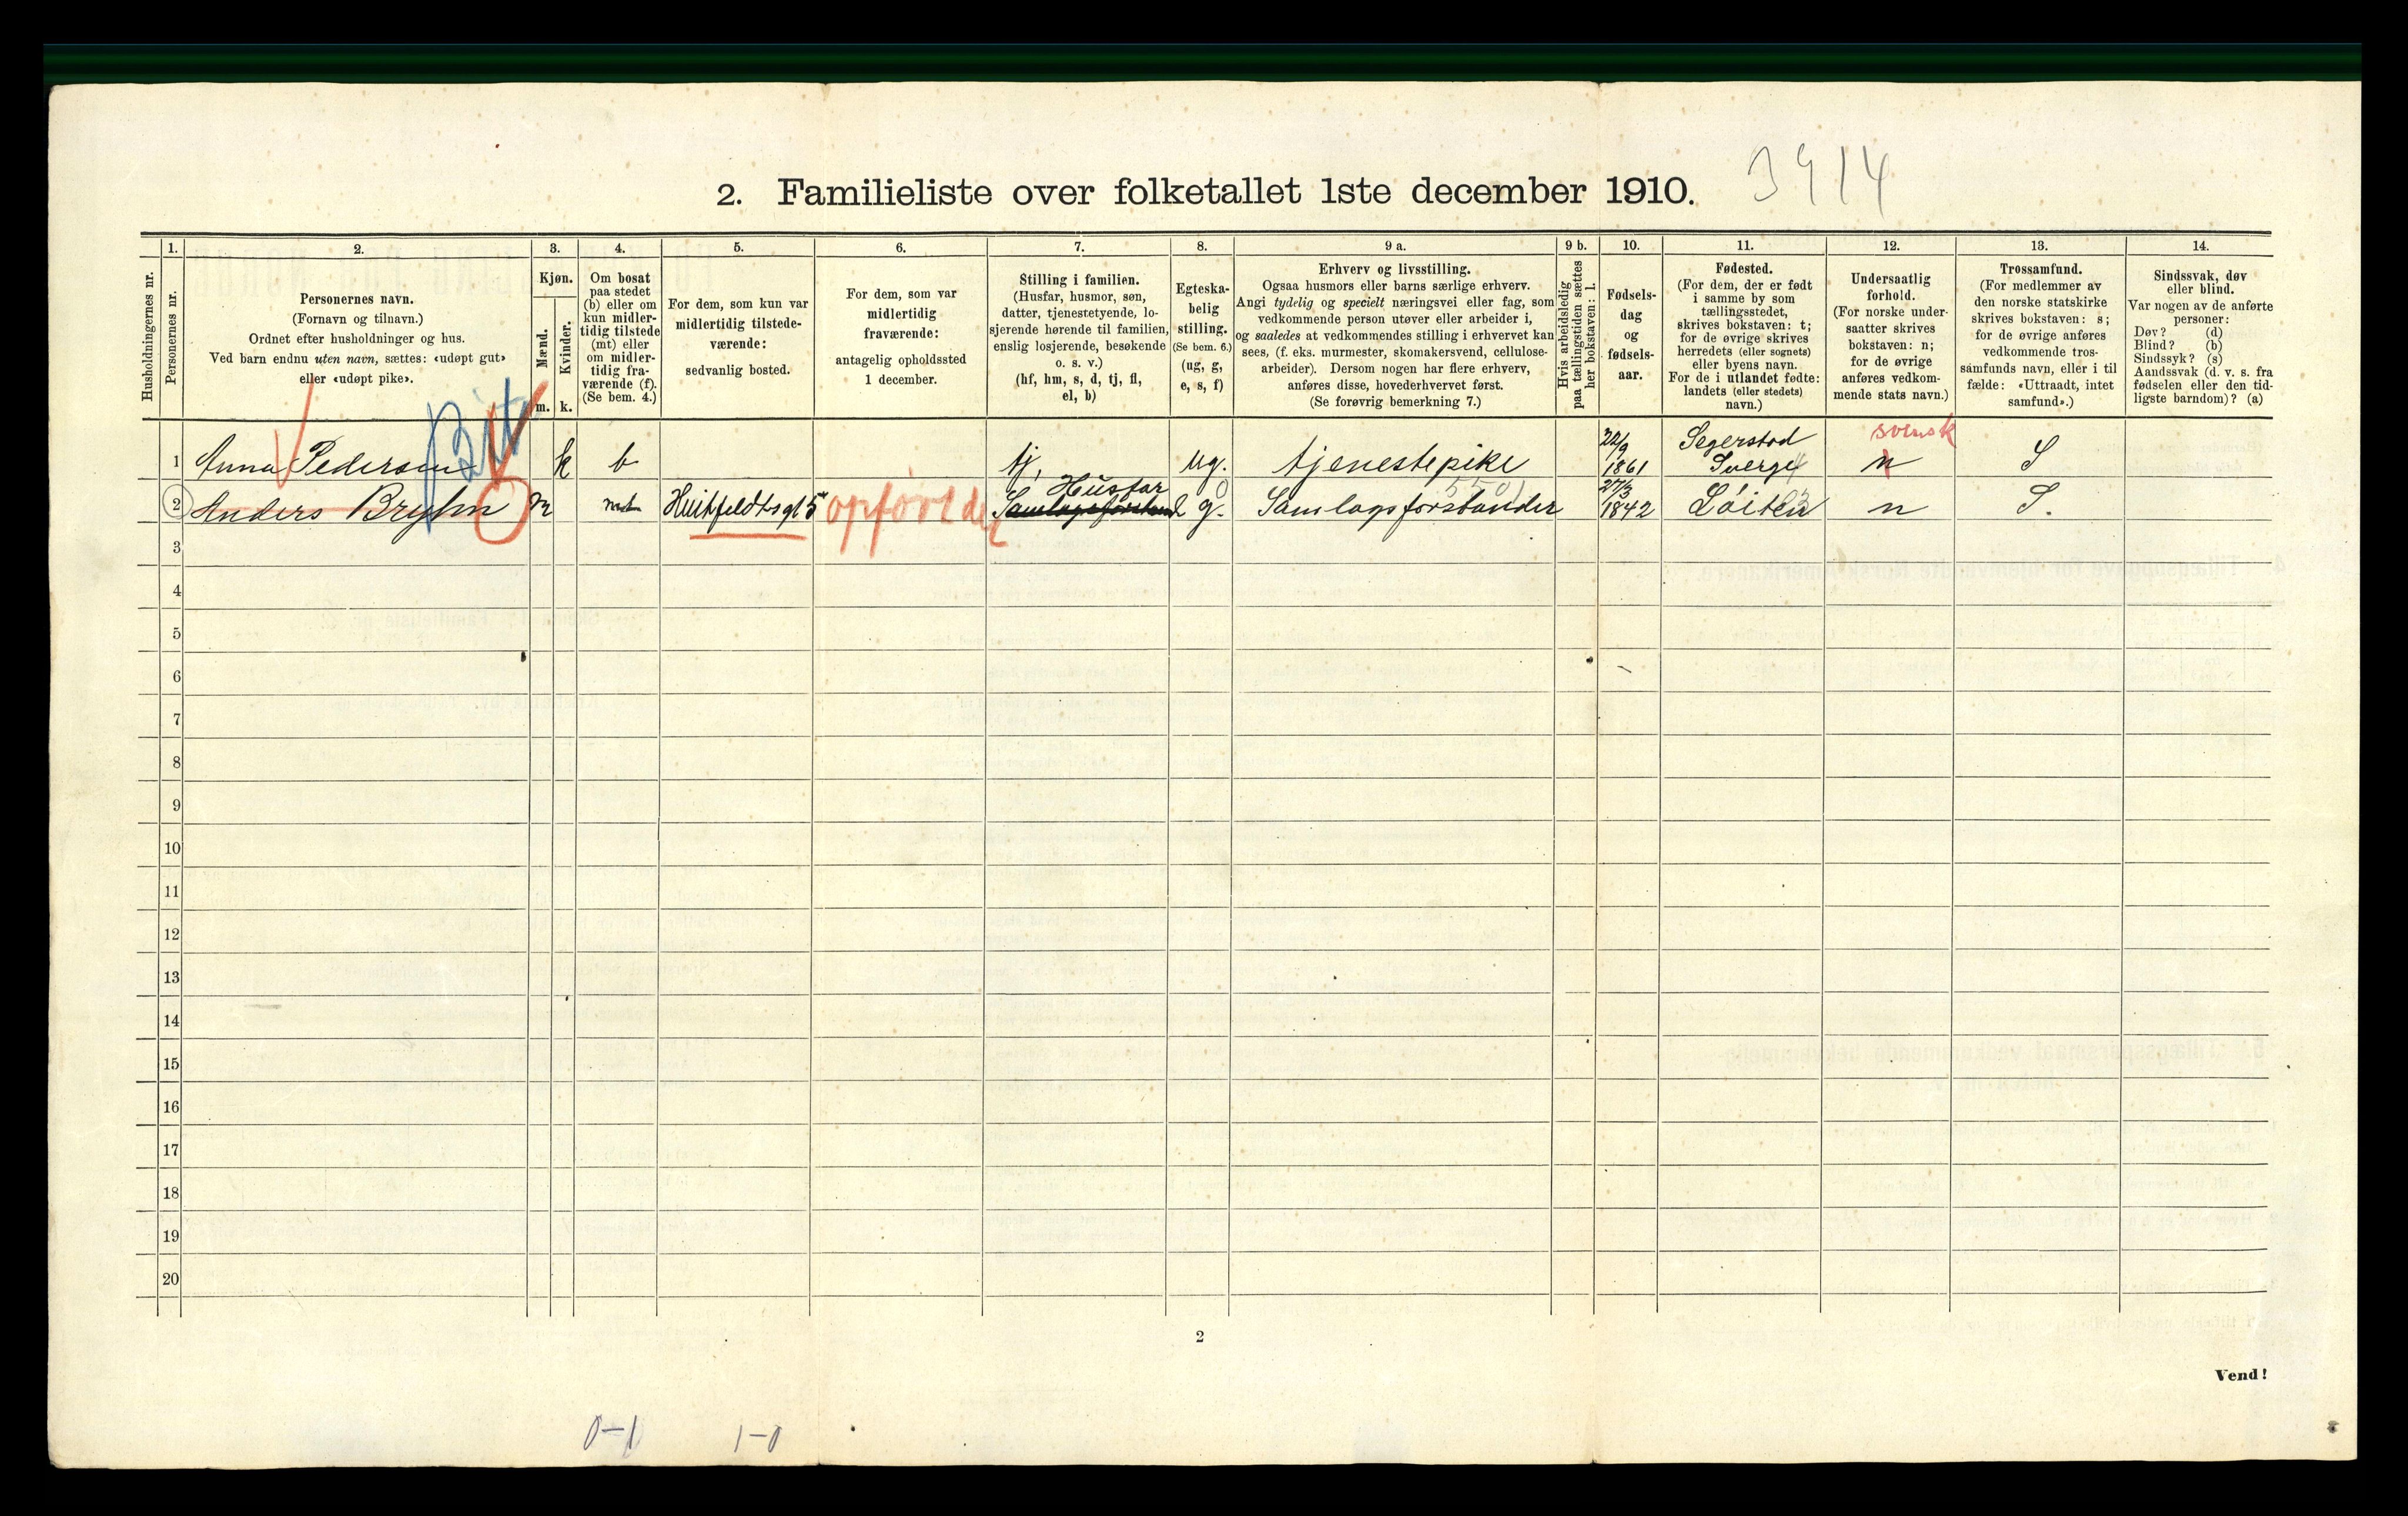 2. Familieliste over folketallet 1ste december 1910. 3914
1. 2. 3. 4. 5. 6. 7. 8. 9 a. 9 b. 10. 11. 12. 13. 14.
Husholdningernes nr.
Personernes nr.
Personernes navn.
(Fornavn og tilnavn.)
Ordnet efter husholdninger og hus.
Ved barn endnu uten navn, sættes: «udøpt gut»
eller «udøpt pike».
Kjøn.
Mænd.
m.
Kvinder.
k.
Om bosat
paa stedet
(b) eller om
kun midler-
tidig tilstede
(mt) eller
om midler-
tidig fra-
værende (f).
(Se bem. 4.)
For dem, som kun var
midlertidig tilstede-
værende:
sedvanlig bosted.
For dem, som var
midlertidig
fraværende:
antagelig opholdssted
1 december.
Stilling i familien.
(Husfar, husmor, søn,
datter, tjenestetyende, lo-
sjerende hørende til familien,
enslig losjerende, besøkende
o. s. v.)
(hf, hm, s, d, tj, fl,
el, b)
Egteska-
belig
stilling.
(Se bem. 6.)
(ug, g,
e, s, f)
Erhverv og livsstilling.
Ogsaa husmors eller barns særlige erhverv.
Angi tydelig og specielt næringsvei eller fag, som
vedkommende person utøver eller arbeider i,
og saaledes at vedkommendes stilling i erhvervet kan
sees, (f. eks. murmester, skomakersvend, cellulose-
arbeider). Dersom nogen har flere erhverv,
anføres disse, hovederhvervet først.
(Se forøvrig bemerkning 7.)
Hvis arbeidsledig
paa tællingstiden sættes
her bokstaven: l.
Fødsels-
dag
og
fødsels-
aar.
Fødested.
(For dem, der er født
i samme by som
tællingsstedet,
skrives bokstaven: t;
for de øvrige skrives
herredets (eller sognets)
eller byens navn.
For de i utlandet fødte:
landets (eller stedets)
navn.)
Undersaatlig
forhold.
(For norske under-
saatter skrives
bokstaven: n;
for de øvrige
anføres vedkom-
mende stats navn.)
Trossamfund.
(For medlemmer av
den norske statskirke
skrives bokstaven: s;
for de øvrige anføres
vedkommende tros-
samfunds navn, eller i til
fælde: «Uttraadt, intet
samfund».)
Sindssvak, døv
eller blind.
Var nogen av de anførte
personer:
Døv? (d)
Blind? (b)
Sindssyk? (s)
Aandssvak (d. v. s. fra
fødselen eller den tid-
ligste barndom)? (a)
Bit
22/9 Segerstod svensk
1 Anna Pedersen k b tj, ug. tjenestepike 1861 Sverge 4 n S
Husfar 0 5501 27/3
2 Anders Bryhn m mt Huitfeldtsgt 5 opført der g. Samlagsforstander 1842 Løiten n S.
3
4
5
6
7
8
9
10
11
12
13
14
15
16
17
18
19
20
2
Vend!
0-1 1-0